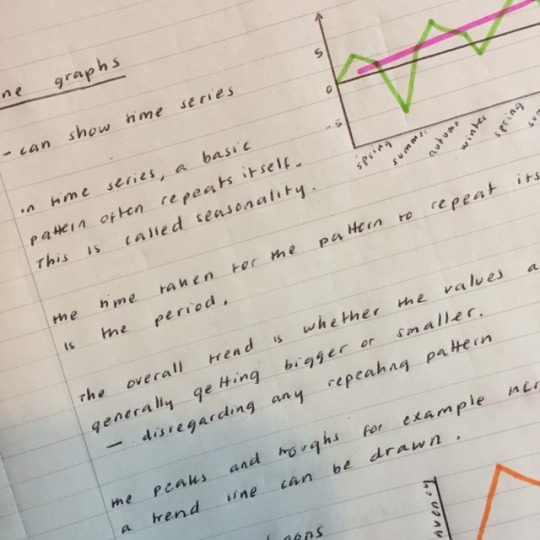 ne graphs
- can show time series
in time series, a basic
pattern often repeats itself.
This is called seasonality.
the time taken for the pattern to repeat its
is the period.
The overall trend is whether the values a
generally getting bigger or smaller.
- disregarding any repeating pattern
the peaks and troughs for example incr
a trend line can be drawn.
5
0
-5
spring
summer
autumn
winter
spring